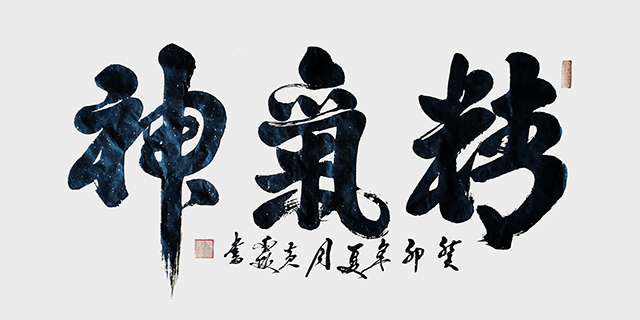 精氣神
癸卯年夏月黄書